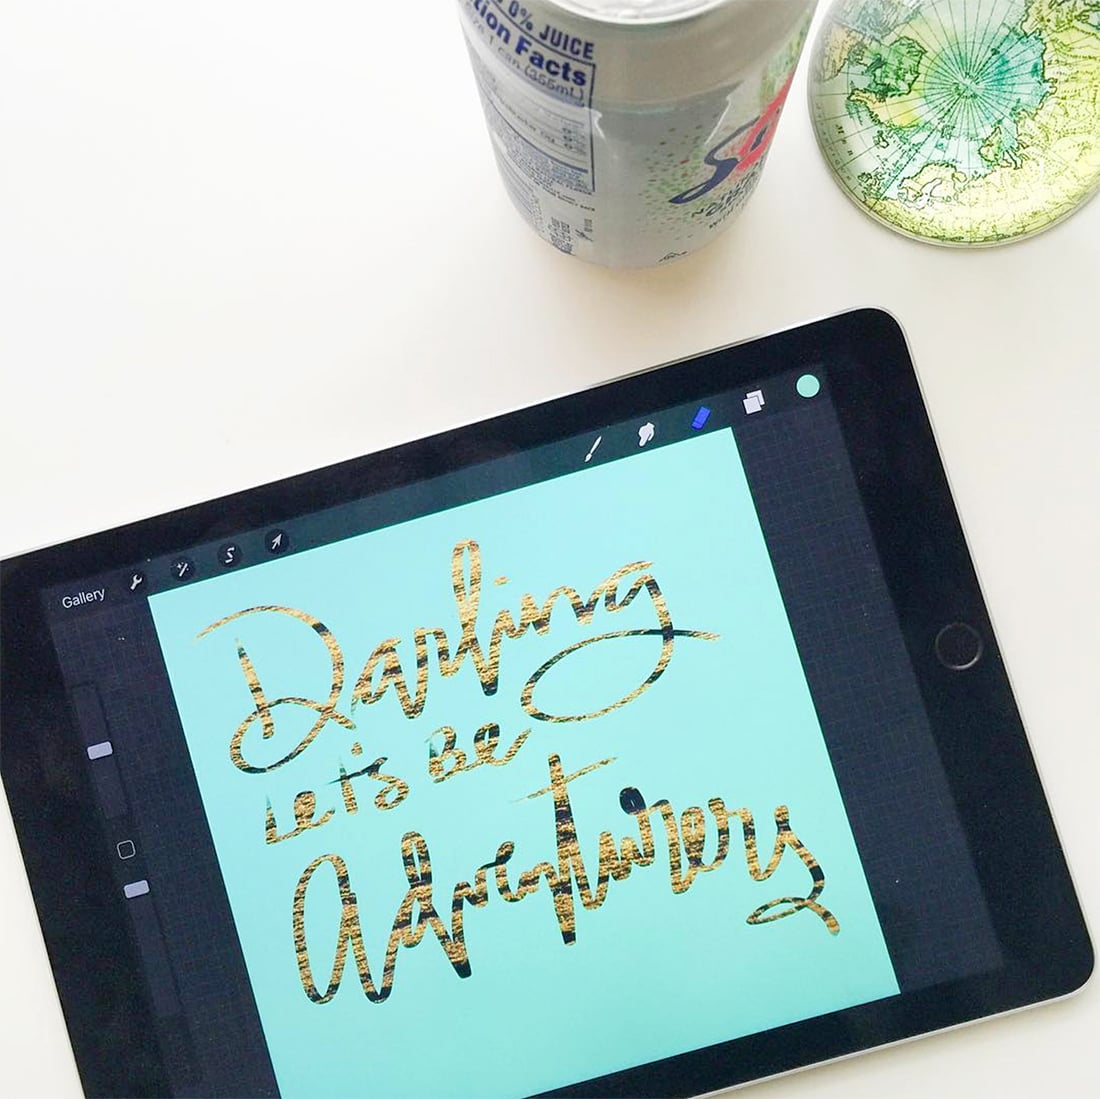 0% JUICE
tion Facts
1 can (355mL)
Gallery
Darling
Let's Be
Adventurers